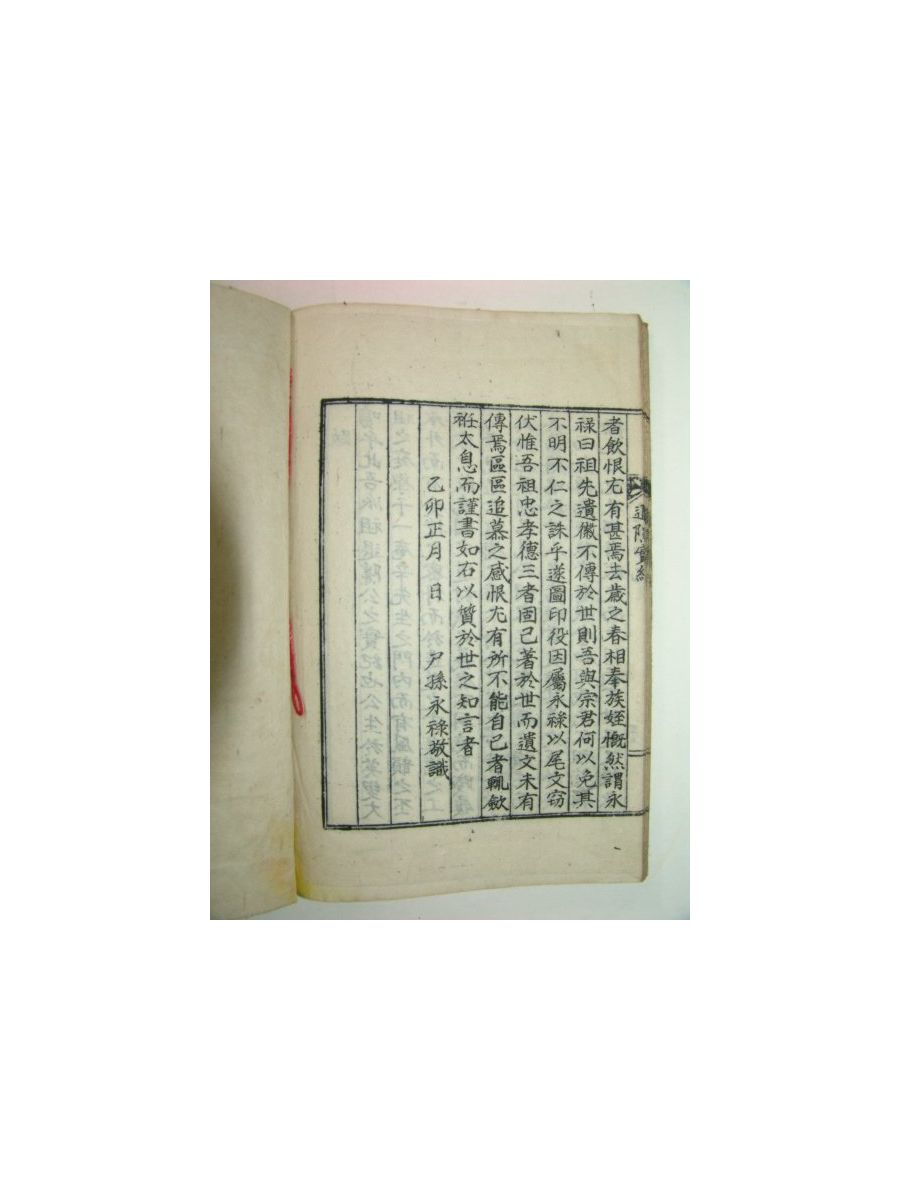 退隱實紀
者飮恨尤有甚焉去歲之春相奉族姪慨然謂永
祿曰祖先遺徽不傳於世則吾與宗君何以免其
不明不仁之誅乎遂圖印役因屬永祿以尾文窃
伏惟吾祖忠孝德三者固已著於世而遺文未有
傳焉區區追慕之感恨尤有所不能自已者輒斂
袵太息而謹書如右以質於世之知言者
乙卯正月 日 尸孫永祿敬識